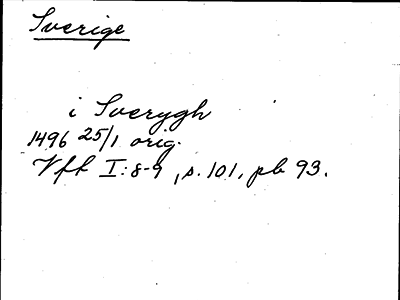 Sverige
i Sverygh
1496 25/1 orig.
Vfk I:8-9, s. 101, pb 93.